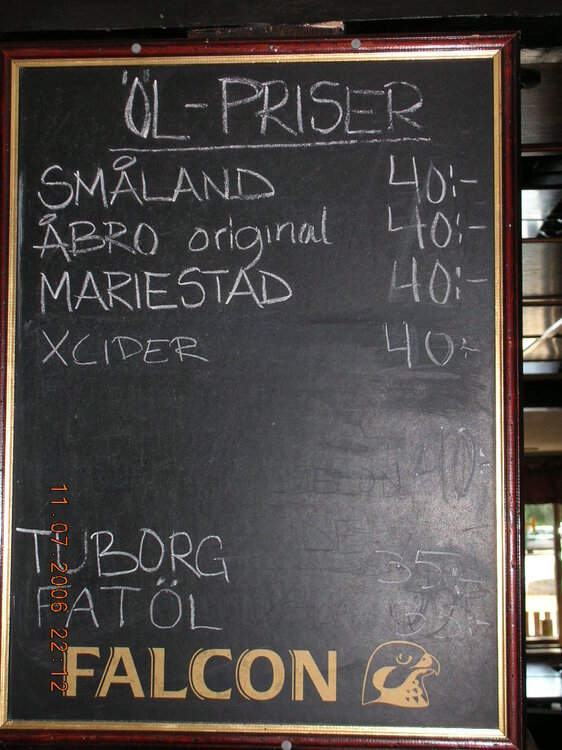 ÖL-PRISER
SMÅLAND 40:-
ÅBRO original 40:-
MARIESTAD 40:-
XCIDER 40:-
40:-
TUBORG 35:-
FATÖL
FALCON
11.07.2006 22:12